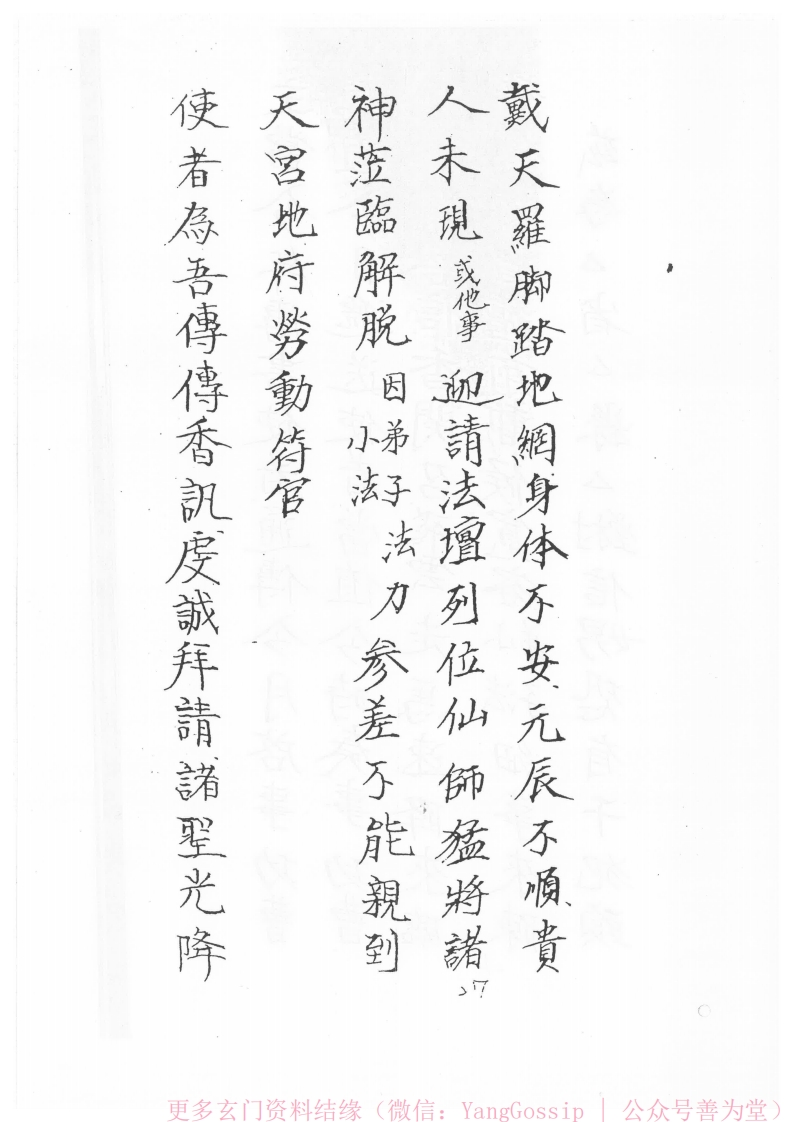 戴天羅脚踏地網身体不安元辰不順貴
人未現或他事迎請法壇列位仙師猛將諸
神蒞臨解脱因弟子小法法力參差不能親到
天宮地府勞動符官
使者為吾傳傳香訊虔誠拜請諸聖光降
27
更多玄门资料结缘（微信：YangGossip | 公众号善为堂）